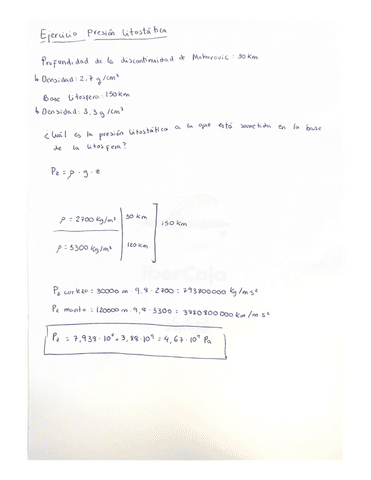 Ejercicio Presión Litostática
Profundidad de la discontinuidad de Mohorovic: 30 km
↳ Densidad: 2,7 g/cm³
Base litosfera: 150 km
↳ Densidad: 3,3 g/cm³
¿Cuál es la presión litostática a la que está sometida en la base
de la litosfera?
PL = ρ · g · z
ρ = 2700 kg/m³ | 30 km
150 km
ρ = 3300 kg/m³ | 120 km
iberCaja
PL corteza = 30000 m · 9,8 · 2700 = 793800000 kg/m s²
PL manto = 120000 m · 9,8 · 3300 = 3880800000 km/m s²
PL = 7,938 · 10⁸ + 3,88 · 10⁹ = 4,67 · 10⁹ Pa